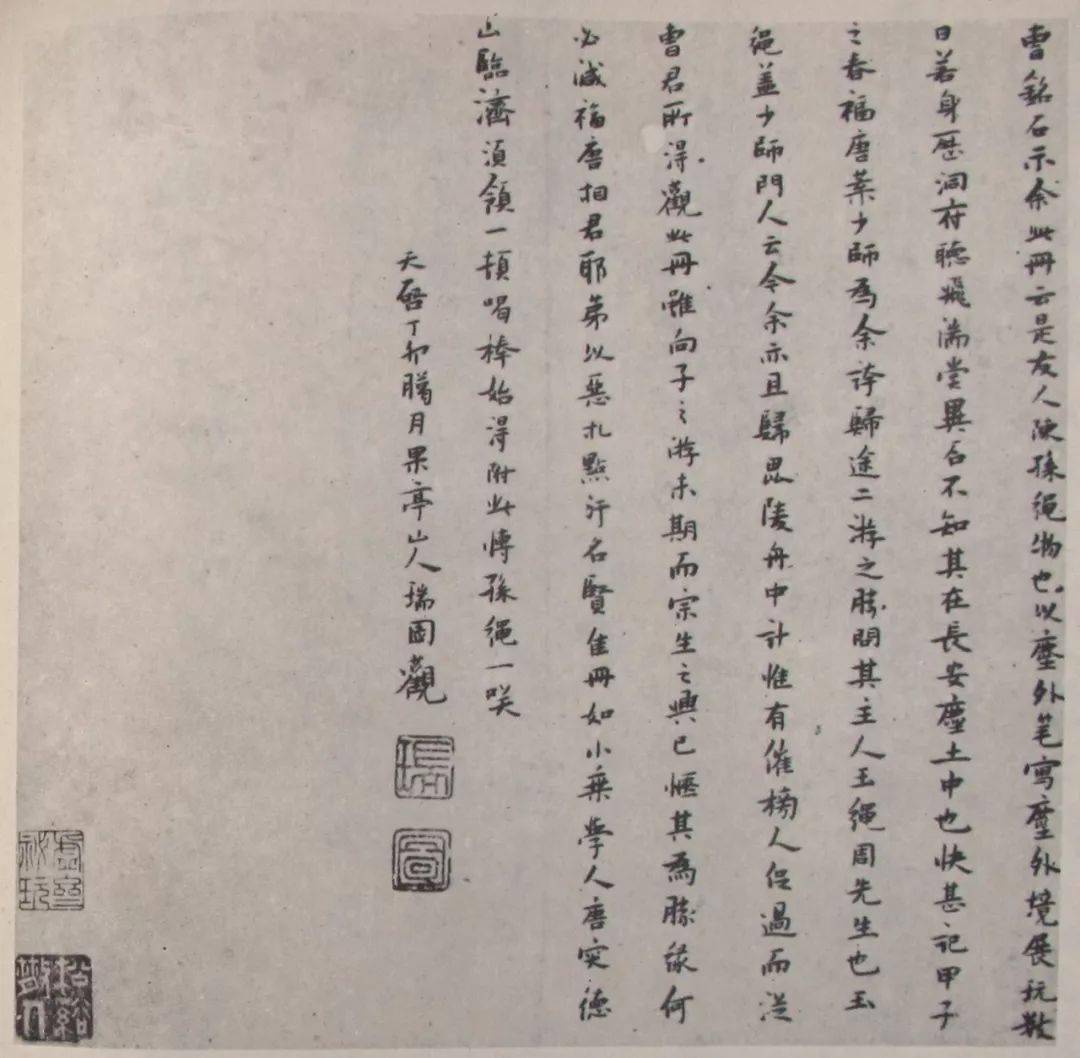 曹銘石示余此冊云是友人陳孫繩物也以塵外笔寫塵外境展玩数
日若身歷洞府聽飛湍堂異谷不知其在長安塵土中也快甚記甲子
之春福唐葉少師為余誇歸途二游之勝問其主人玉繩周先生也玉
繩盖少師門人云今余亦且歸毘陵舟中計惟有催榜人促過而從
曹君所得觀此冊雖向子之游未期而宗生之興已愜其為勝緣何
必減福唐相君耶第以惡札點汙名賢隹冊如小乗學人唐突德
山臨濟湏領一頓喝棒始得附此博孫繩一咲
天啓丁卯臈月果亭山人瑞圖觀
瑞
圖